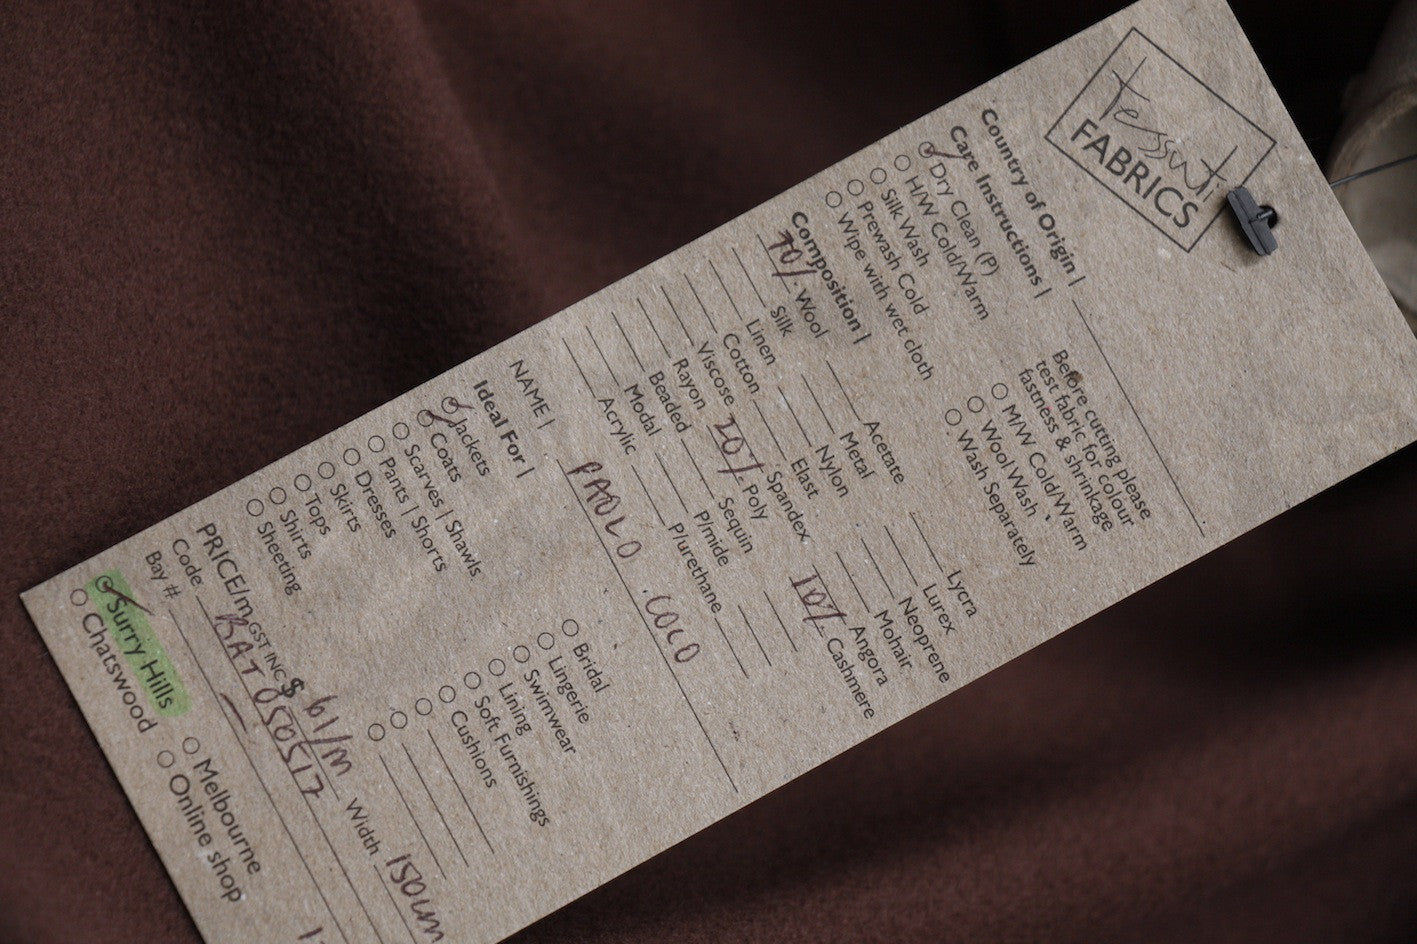 tessuti
FABRICS
Country of Origin |
Care Instructions |
Dry Clean (P)
H/W Cold/Warm
Silk Wash
Prewash Cold
Wipe with wet cloth
Before cutting please
test fabric for colour
fastness & shrinkage
M/W Cold/Warm
Wool Wash
Wash Separately
Composition |
70% Wool
Silk
Linen
Cotton
Viscose
Rayon
Beaded
Modal
Acrylic
Acetate
Metal
Nylon
Elast
Spandex
20% Poly
Sequin
P/mide
P/urethane
Lycra
Lurex
Neoprene
Mohair
Angora
10% Cashmere
NAME | PAOLO COCO
Ideal For |
Jackets
Coats
Scarves | Shawls
Pants | Shorts
Dresses
Skirts
Tops
Shirts
Sheeting
Bridal
Lingerie
Swimwear
Lining
Soft Furnishings
Cushions
PRICE/m GST INC $ 61/m Width 150cm
Code: BAT 050517
Bay #:
Surry Hills
Chatswood
Melbourne
Online shop